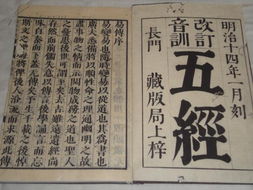 明治十四年一月刻
改訂
音訓
五經
長門 藏版局上梓
易傳序
易變易也隨時變易以從道也其為書也
廣大悉備將以順性命之理通幽明之故
盡事物之情而示開物成務之道也聖人
之憂患後世可謂至矣去古雖遠遺經尚
存然而前儒失意以傳言後學誦言而忘
味自秦而下蓋无傳矣予生千載之後悼
斯文之湮晦將俾後人沿流而求源此傳